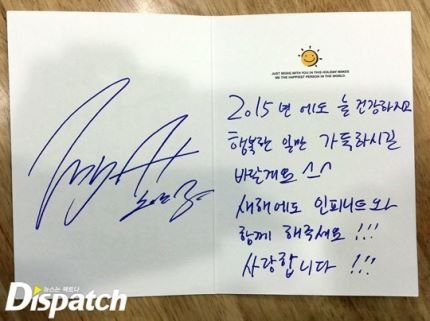 JUST BEING WITH YOU IN THIS HOLIDAY MAKES
ME THE HAPPIEST PERSON IN THE WORLD
2015년 에도 늘 건강하시고
행복한 일만 가득하시길
바랄게요 ^^
새해에도 인피니트와
함께 해주세요 !!!
사랑합니다 !!!
뉴스는 팩트다
Dispatch